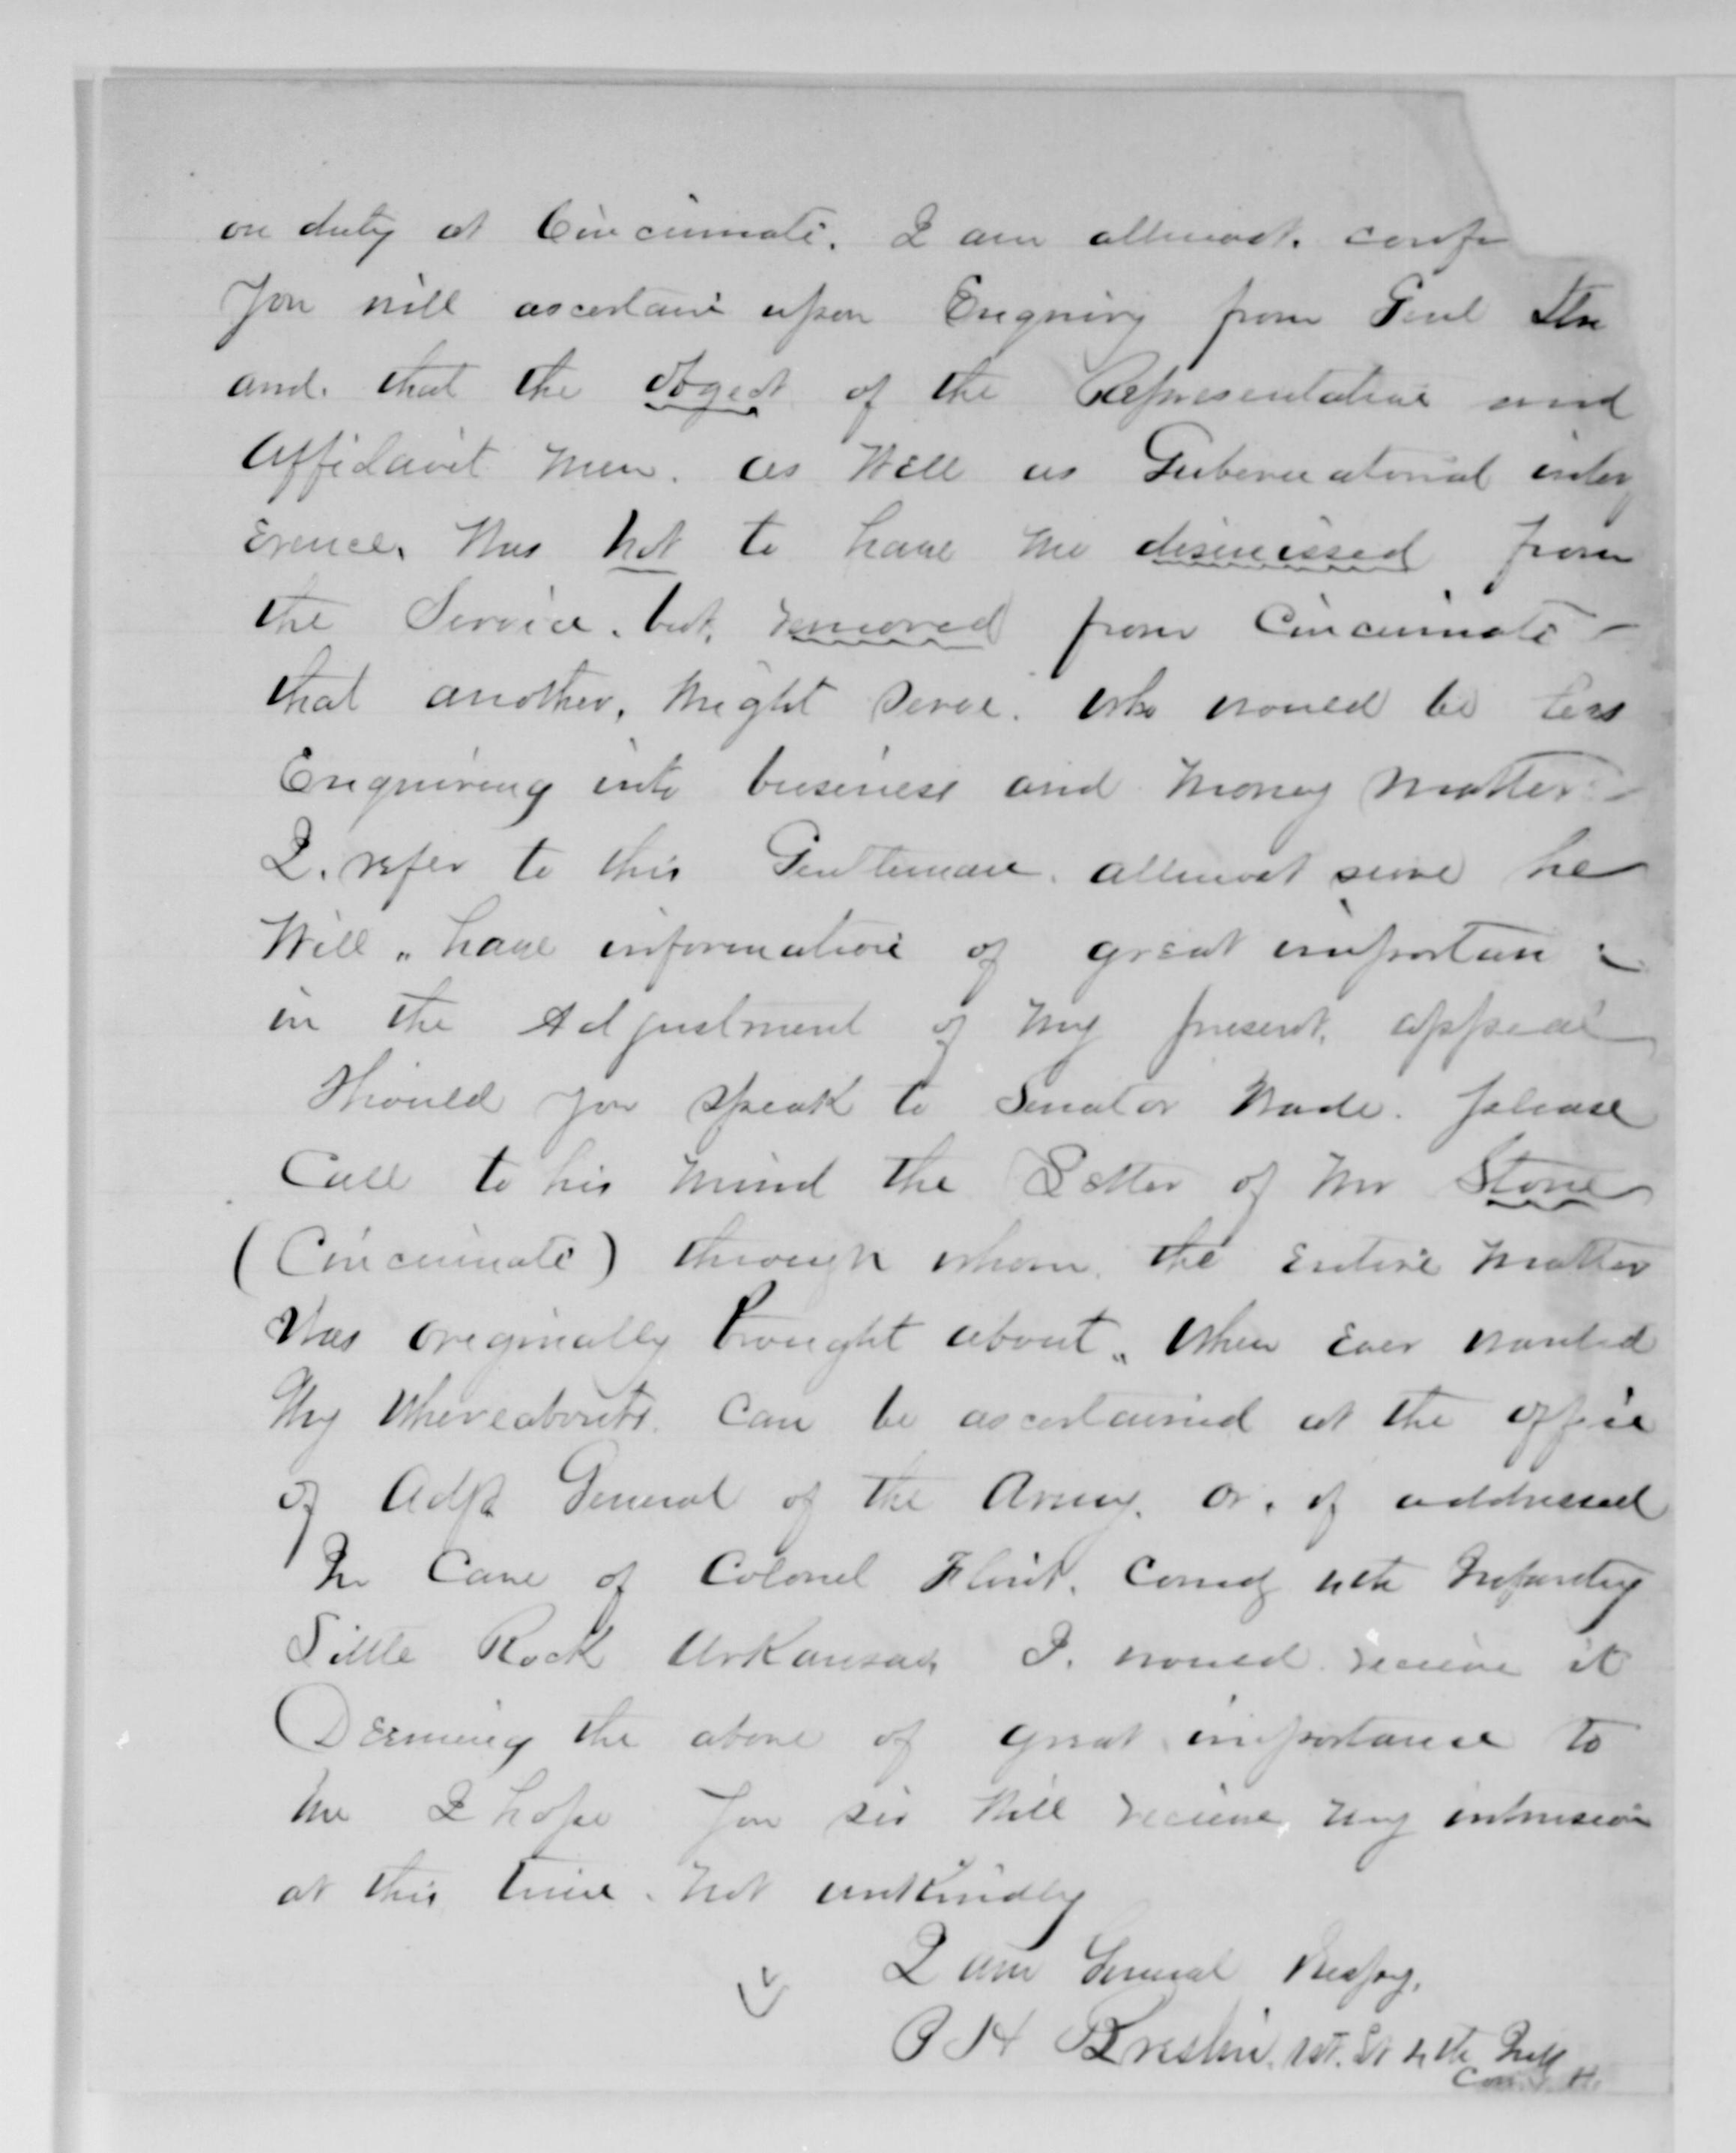 on duty at Cincinnati. I am allmost. conf
You will ascertain upon Enquiry from Genl
and. that the obgect of the Representative and
Affidavit men. as Well as Gubernatorial inter
erence. Was not to have me dismissed from
the Service. but, removed from Cincinnati -
that another, might serve. who would be less
Enquiring into business and money matters -
I. refer to this Gentleman. allmost sure he
Will „ have information of great importan
in the Adjustment of my present, appeal
Should you speak to Senator Wade. please
Call to his mind the Letter of Mr Stone
(Cincinnati) through whom. the entire matter
Was originally brought about „ When ever wanted
My Whereabouts. Can be ascertained at the office
of Adjt General of the Army. or. if addressed
In Care of Colonel Flint. Comdg 4th Infantry
Little Rock Arkansas I. would. recieve it
Deeming the above of great importance to
me I hope You sir Will recieve, my intrusion
at this time. not unkindly
I am General Respty.
P H Breslin. 1st. Lt 4th Inft